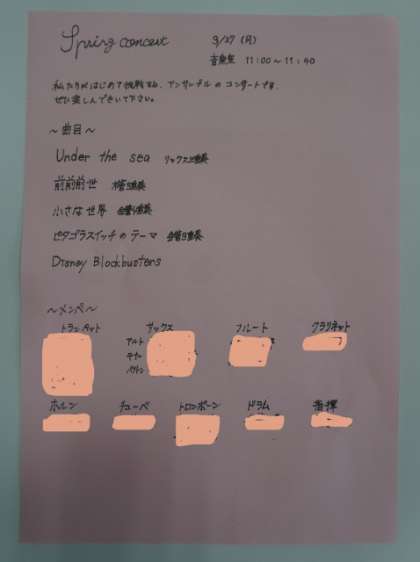 Spring concert
3/27 (月)
音楽室 11:00～11:40
私たちがはじめて挑戦する、アンサンブルのコンサートです。
ぜひ楽しんできいて下さい。
～曲目～
Under the sea サックス 重奏
前前前世 木管 重奏
小さな世界 金管 重奏
ピタゴラスイッチのテーマ 金管8重奏
Disney Blockbusters
～メンバー～
トランペット サックス フルート クラリネット
アルト
テナー
バリトン
ホルン チューバ トロンボーン ドラム 指揮